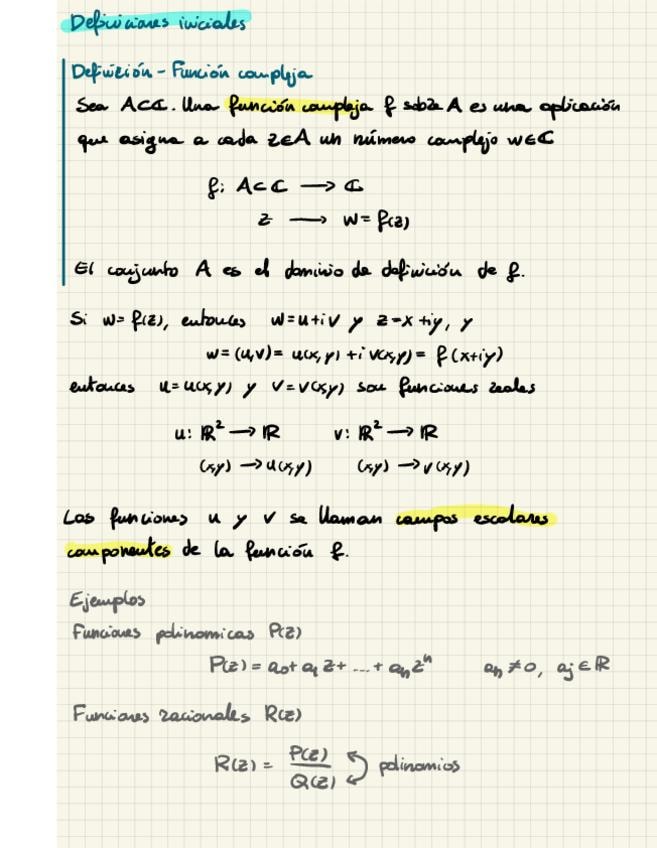 Definiciones iniciales
Definición - Función compleja
Sea A⊂ℂ. Una función compleja f sobre A es una aplicación
que asigna a cada z∈A un número complejo w∈ℂ
f: A⊂ℂ → ℂ
z → w = f(z)
El conjunto A es el dominio de definición de f.
Si w = f(z), entonces w=u+iv y z=x+iy, y
w=(u,v)= u(x,y)+i v(x,y)= f(x+iy)
entonces u=u(x,y) y v=v(x,y) son funciones reales
u: ℝ² → ℝ v: ℝ² → ℝ
(x,y) → u(x,y) (x,y) → v(x,y)
Las funciones u y v se llaman campos escolares
componentes de la función f.
Ejemplos
Funciones polinomicas P(z)
P(z) = a₀ + a₁ z + ... + aₙ zⁿ aₙ ≠ 0, aⱼ ∈ ℝ
Funciones racionales R(z)
R(z) = P(z)/Q(z) polinomios